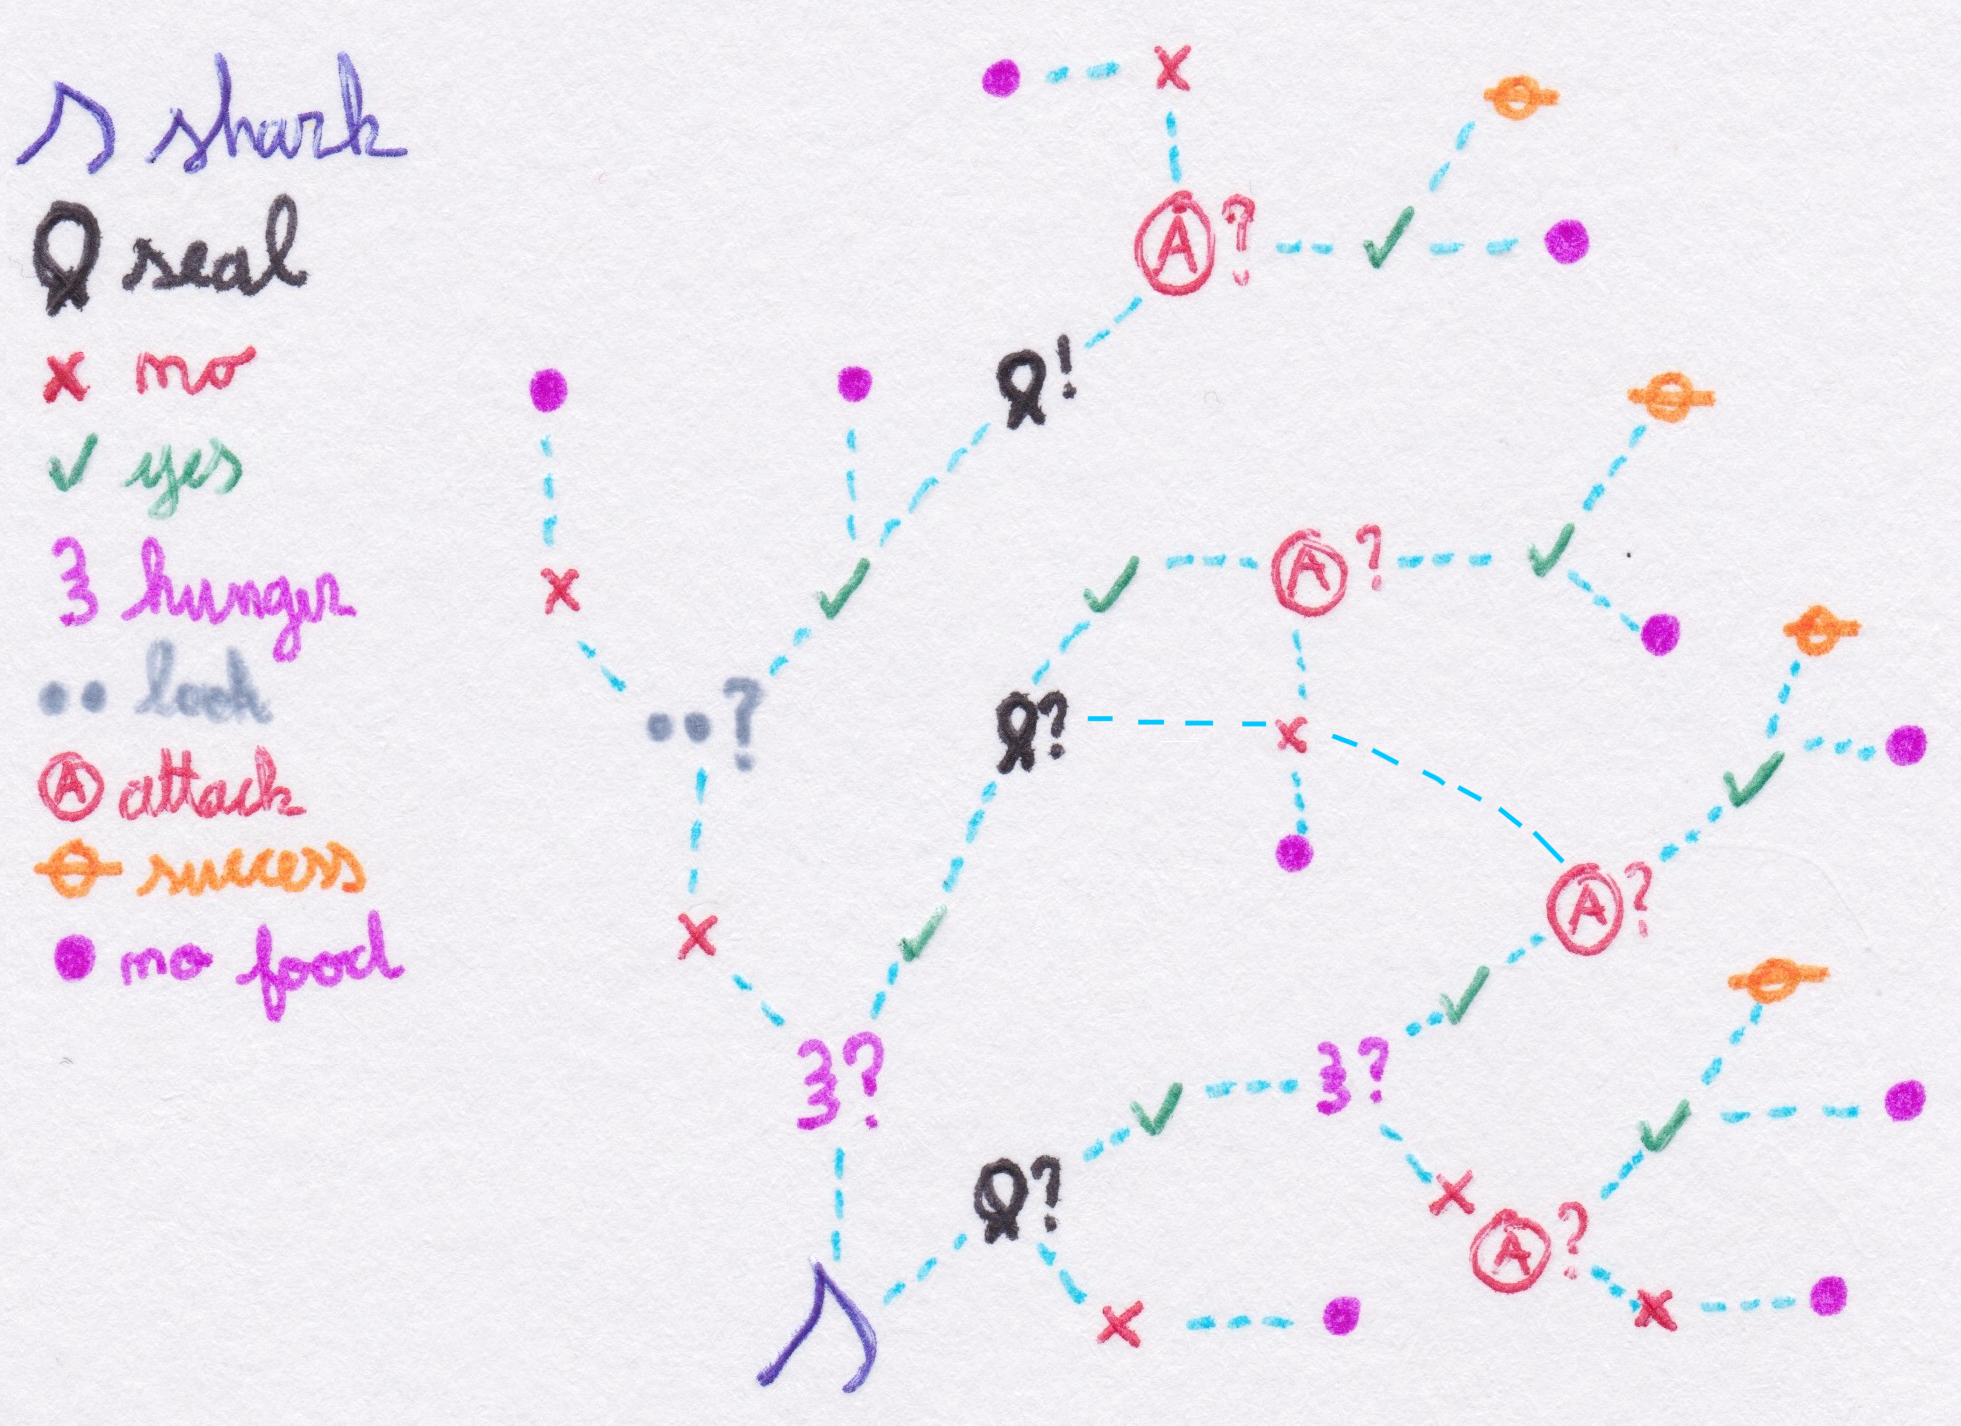 shark
seal
no
yes
hunger
look
A attack
success
no food
A?
!
A?
?
?
A?
?
?
?
A?